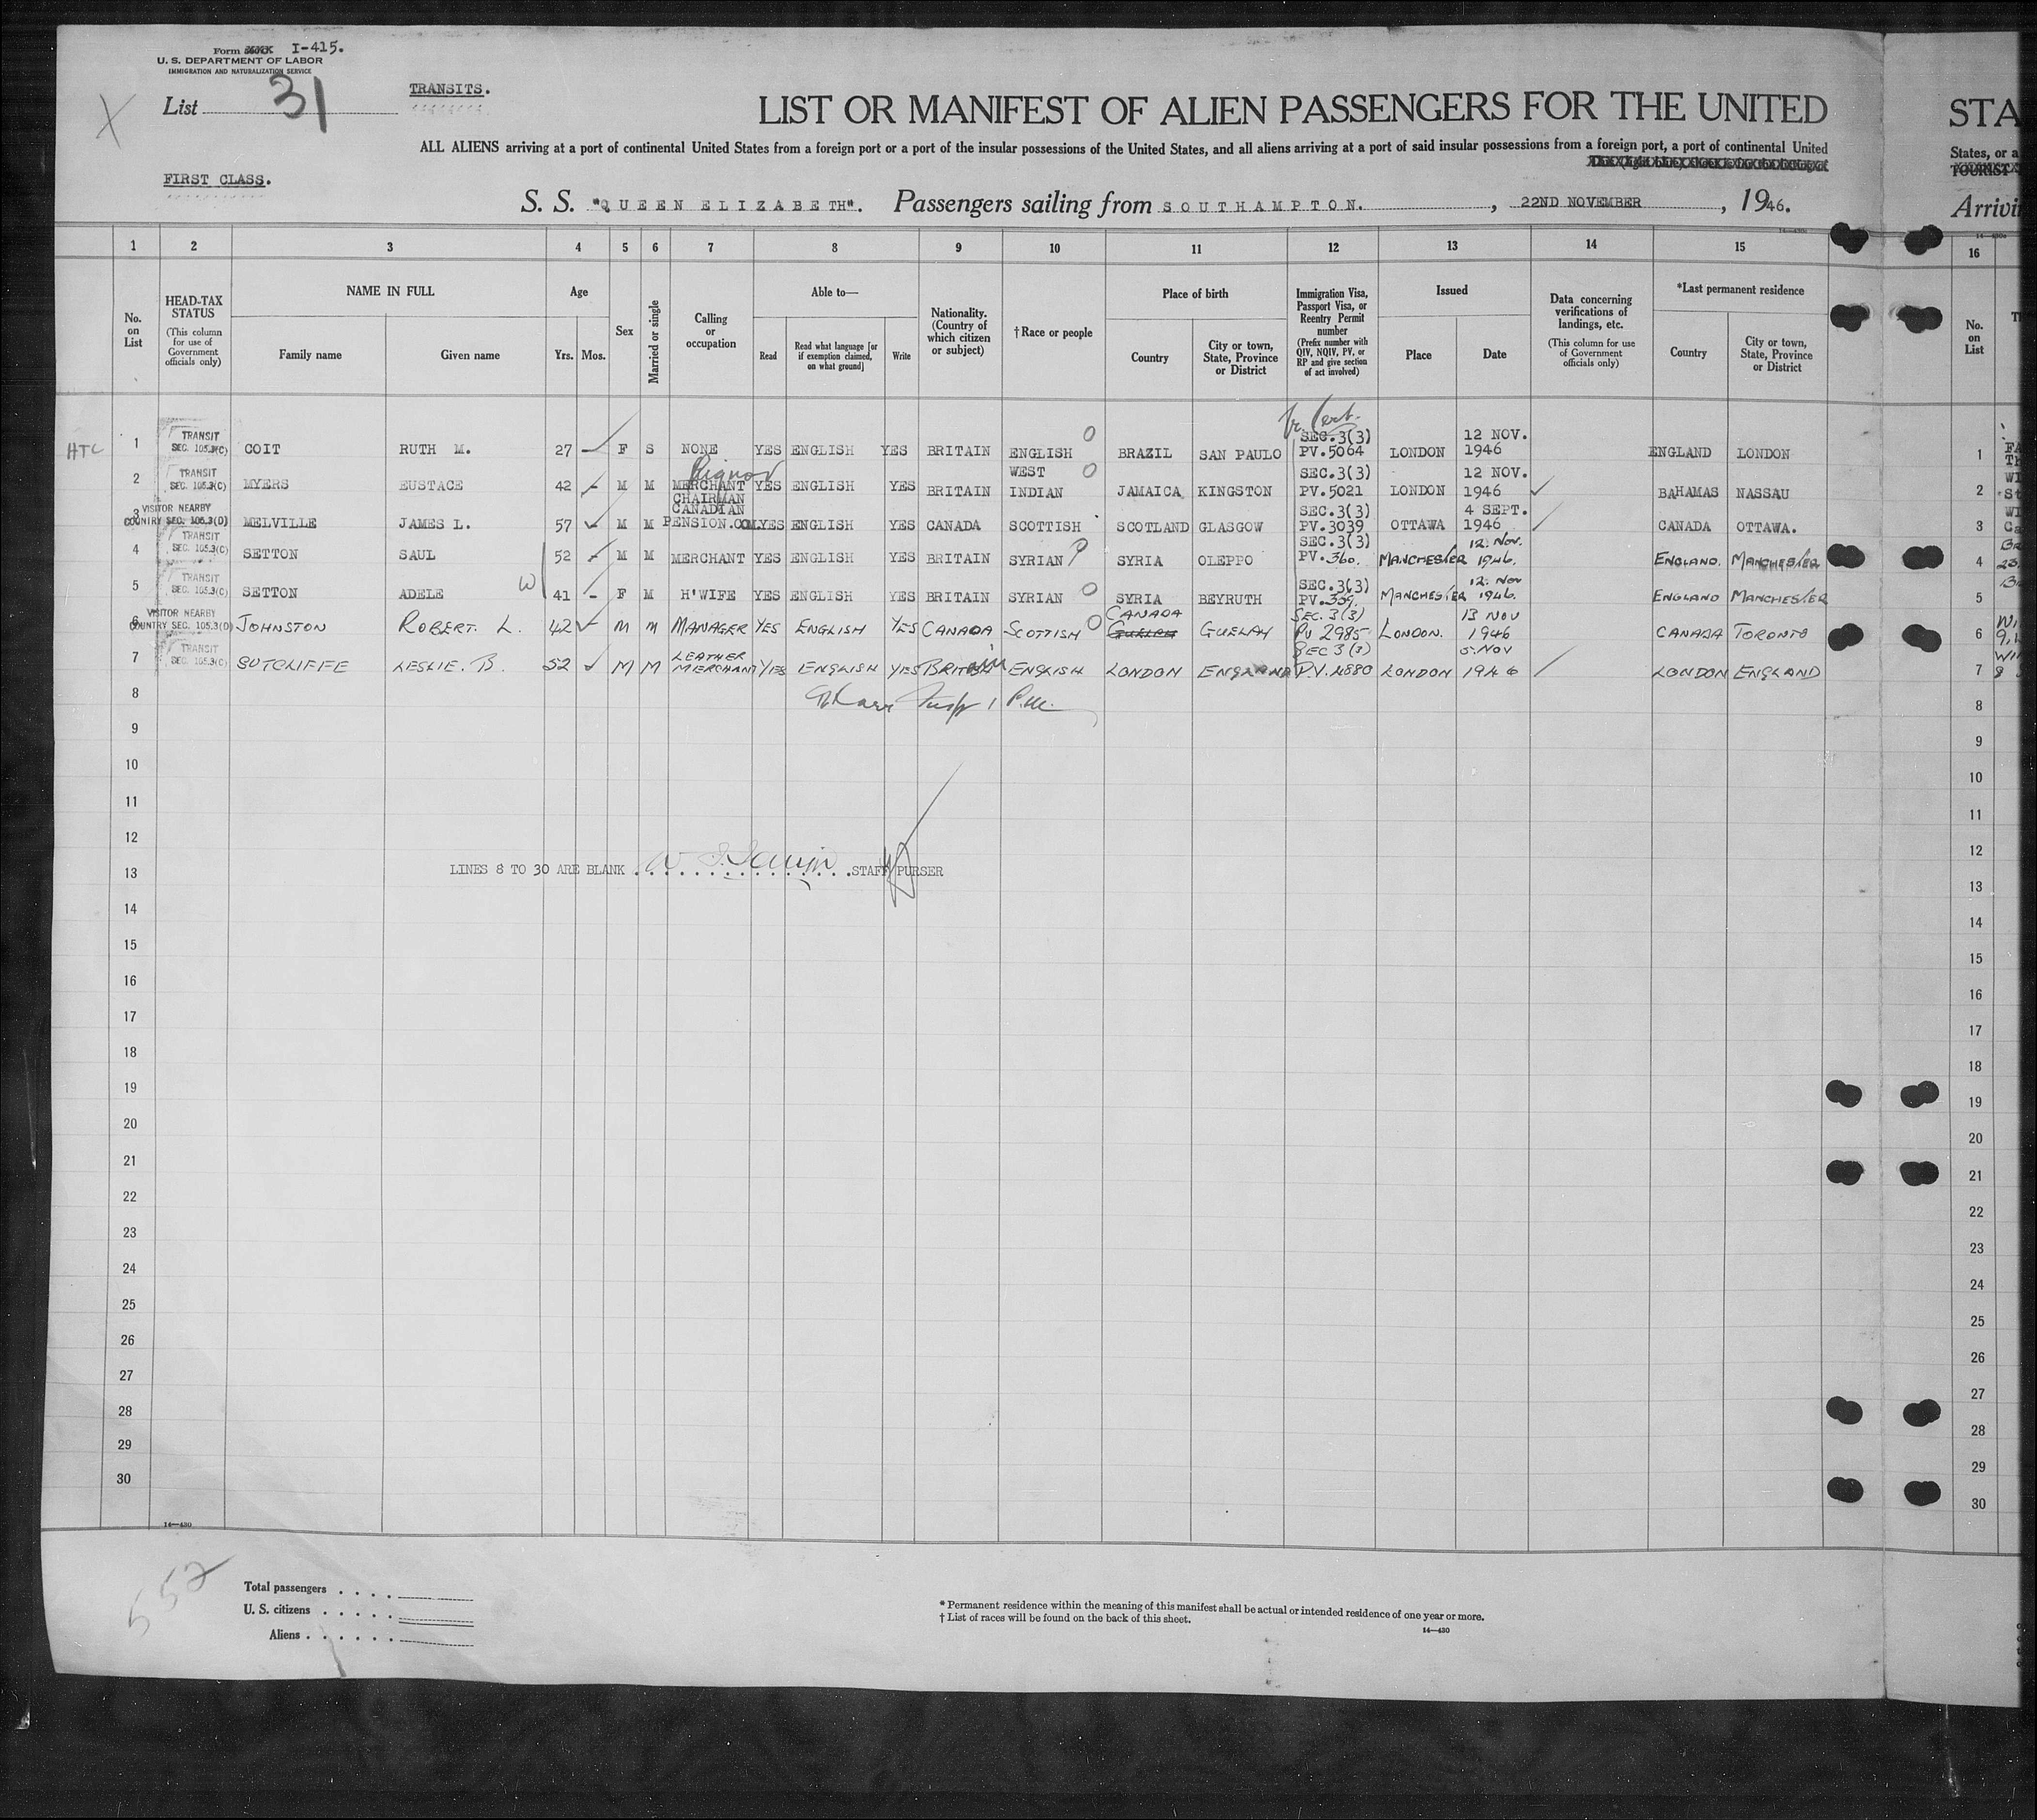 Form I-415.
U. S. DEPARTMENT OF LABOR
IMMIGRATION AND NATURALIZATION SERVICE
List 31
TRANSITS.
LIST OR MANIFEST OF ALIEN PASSENGERS FOR THE UNITED
STA
ALL ALIENS arriving at a port of continental United States from a foreign port or a port of the insular possessions of the United States, and all aliens arriving at a port of said insular possessions from a foreign port, a port of continental United
States, or a
TOURIST
FIRST CLASS.
S. S. "QUEEN ELIZABETH". Passengers sailing from SOUTHAMPTON. , 22ND NOVEMBER , 1946.
Arrivi
1 2 3 4 5 6 7 8 9 10 11 12 13 14 15 16
No. on List
HEAD-TAX STATUS (This column for use of Government officials only)
NAME IN FULL
Family name Given name
Age
Yrs. Mos.
Sex
Married or single
Calling or occupation
Able to—
Read Read what language [or if exemption claimed, on what ground] Write
Nationality. (Country of which citizen or subject)
† Race or people
Place of birth
Country City or town, State, Province or District
Immigration Visa, Passport Visa, or Reentry Permit number (Prefix number with QIV, NQIV, PV, or RP and give section of act involved)
Issued
Place Date
Data concerning verifications of landings, etc. (This column for use of Government officials only)
*Last permanent residence
Country City or town, State, Province or District
No. on List
HTC 1 TRANSIT SEC. 105.3(C) COIT RUTH M. 27 F S NONE YES ENGLISH YES BRITAIN ENGLISH BRAZIL SAN PAULO SEC.3(3) PV.5064 LONDON 12 NOV. 1946 ENGLAND LONDON 1
2 TRANSIT SEC. 105.3(C) MYERS EUSTACE 42 M M MERCHANT YES ENGLISH YES BRITAIN WEST INDIAN JAMAICA KINGSTON SEC.3(3) PV.5021 LONDON 12 NOV. 1946 BAHAMAS NASSAU 2
3 VISITOR NEARBY COUNTRY SEC. 105.3(D) MELVILLE JAMES L. 57 M M CHAIRMAN CANADIAN PENSION.COM. YES ENGLISH YES CANADA SCOTTISH SCOTLAND GLASGOW SEC.3(3) PV.3039 OTTAWA 4 SEPT. 1946 CANADA OTTAWA. 3
4 TRANSIT SEC. 105.3(C) SETTON SAUL 52 M M MERCHANT YES ENGLISH YES BRITAIN SYRIAN SYRIA OLEPPO SEC.3(3) PV.360. MANCHESTER 12. Nov. 1946. ENGLAND. MANCHESTER 4
5 TRANSIT SEC. 105.3(C) SETTON ADELE W 41 F M H'WIFE YES ENGLISH YES BRITAIN SYRIAN SYRIA BEYRUTH SEC.3(3) PV.359. MANCHESTER 12. Nov 1946. ENGLAND MANCHESTER 5
6 VISITOR NEARBY COUNTRY SEC. 105.3(D) JOHNSTON ROBERT. L. 42 M M MANAGER YES ENGLISH YES CANADA SCOTTISH CANADA GUELPH SEC.3(3) PV 2985 LONDON. 13 NOV 1946 CANADA TORONTO 6
7 TRANSIT SEC. 105.3(C) SUTCLIFFE LESLIE. B. 52 M M LEATHER MERCHANT YES ENGLISH YES BRITAIN ENGLISH LONDON ENGLAND SEC 3(3) P.V. 4880 LONDON 5. NOV 1946 LONDON ENGLAND 7
8 8
9 9
10 10
11 11
12 12
LINES 8 TO 30 ARE BLANK STAFF PURSER
13 13
14 14
15 15
16 16
17 17
18 18
19 19
20 20
21 21
22 22
23 23
24 24
25 25
26 26
27 27
28 28
29 29
30 30
14—430
552
Total passengers
U. S. citizens
Aliens
* Permanent residence within the meaning of this manifest shall be actual or intended residence of one year or more.
† List of races will be found on the back of this sheet.
14—430